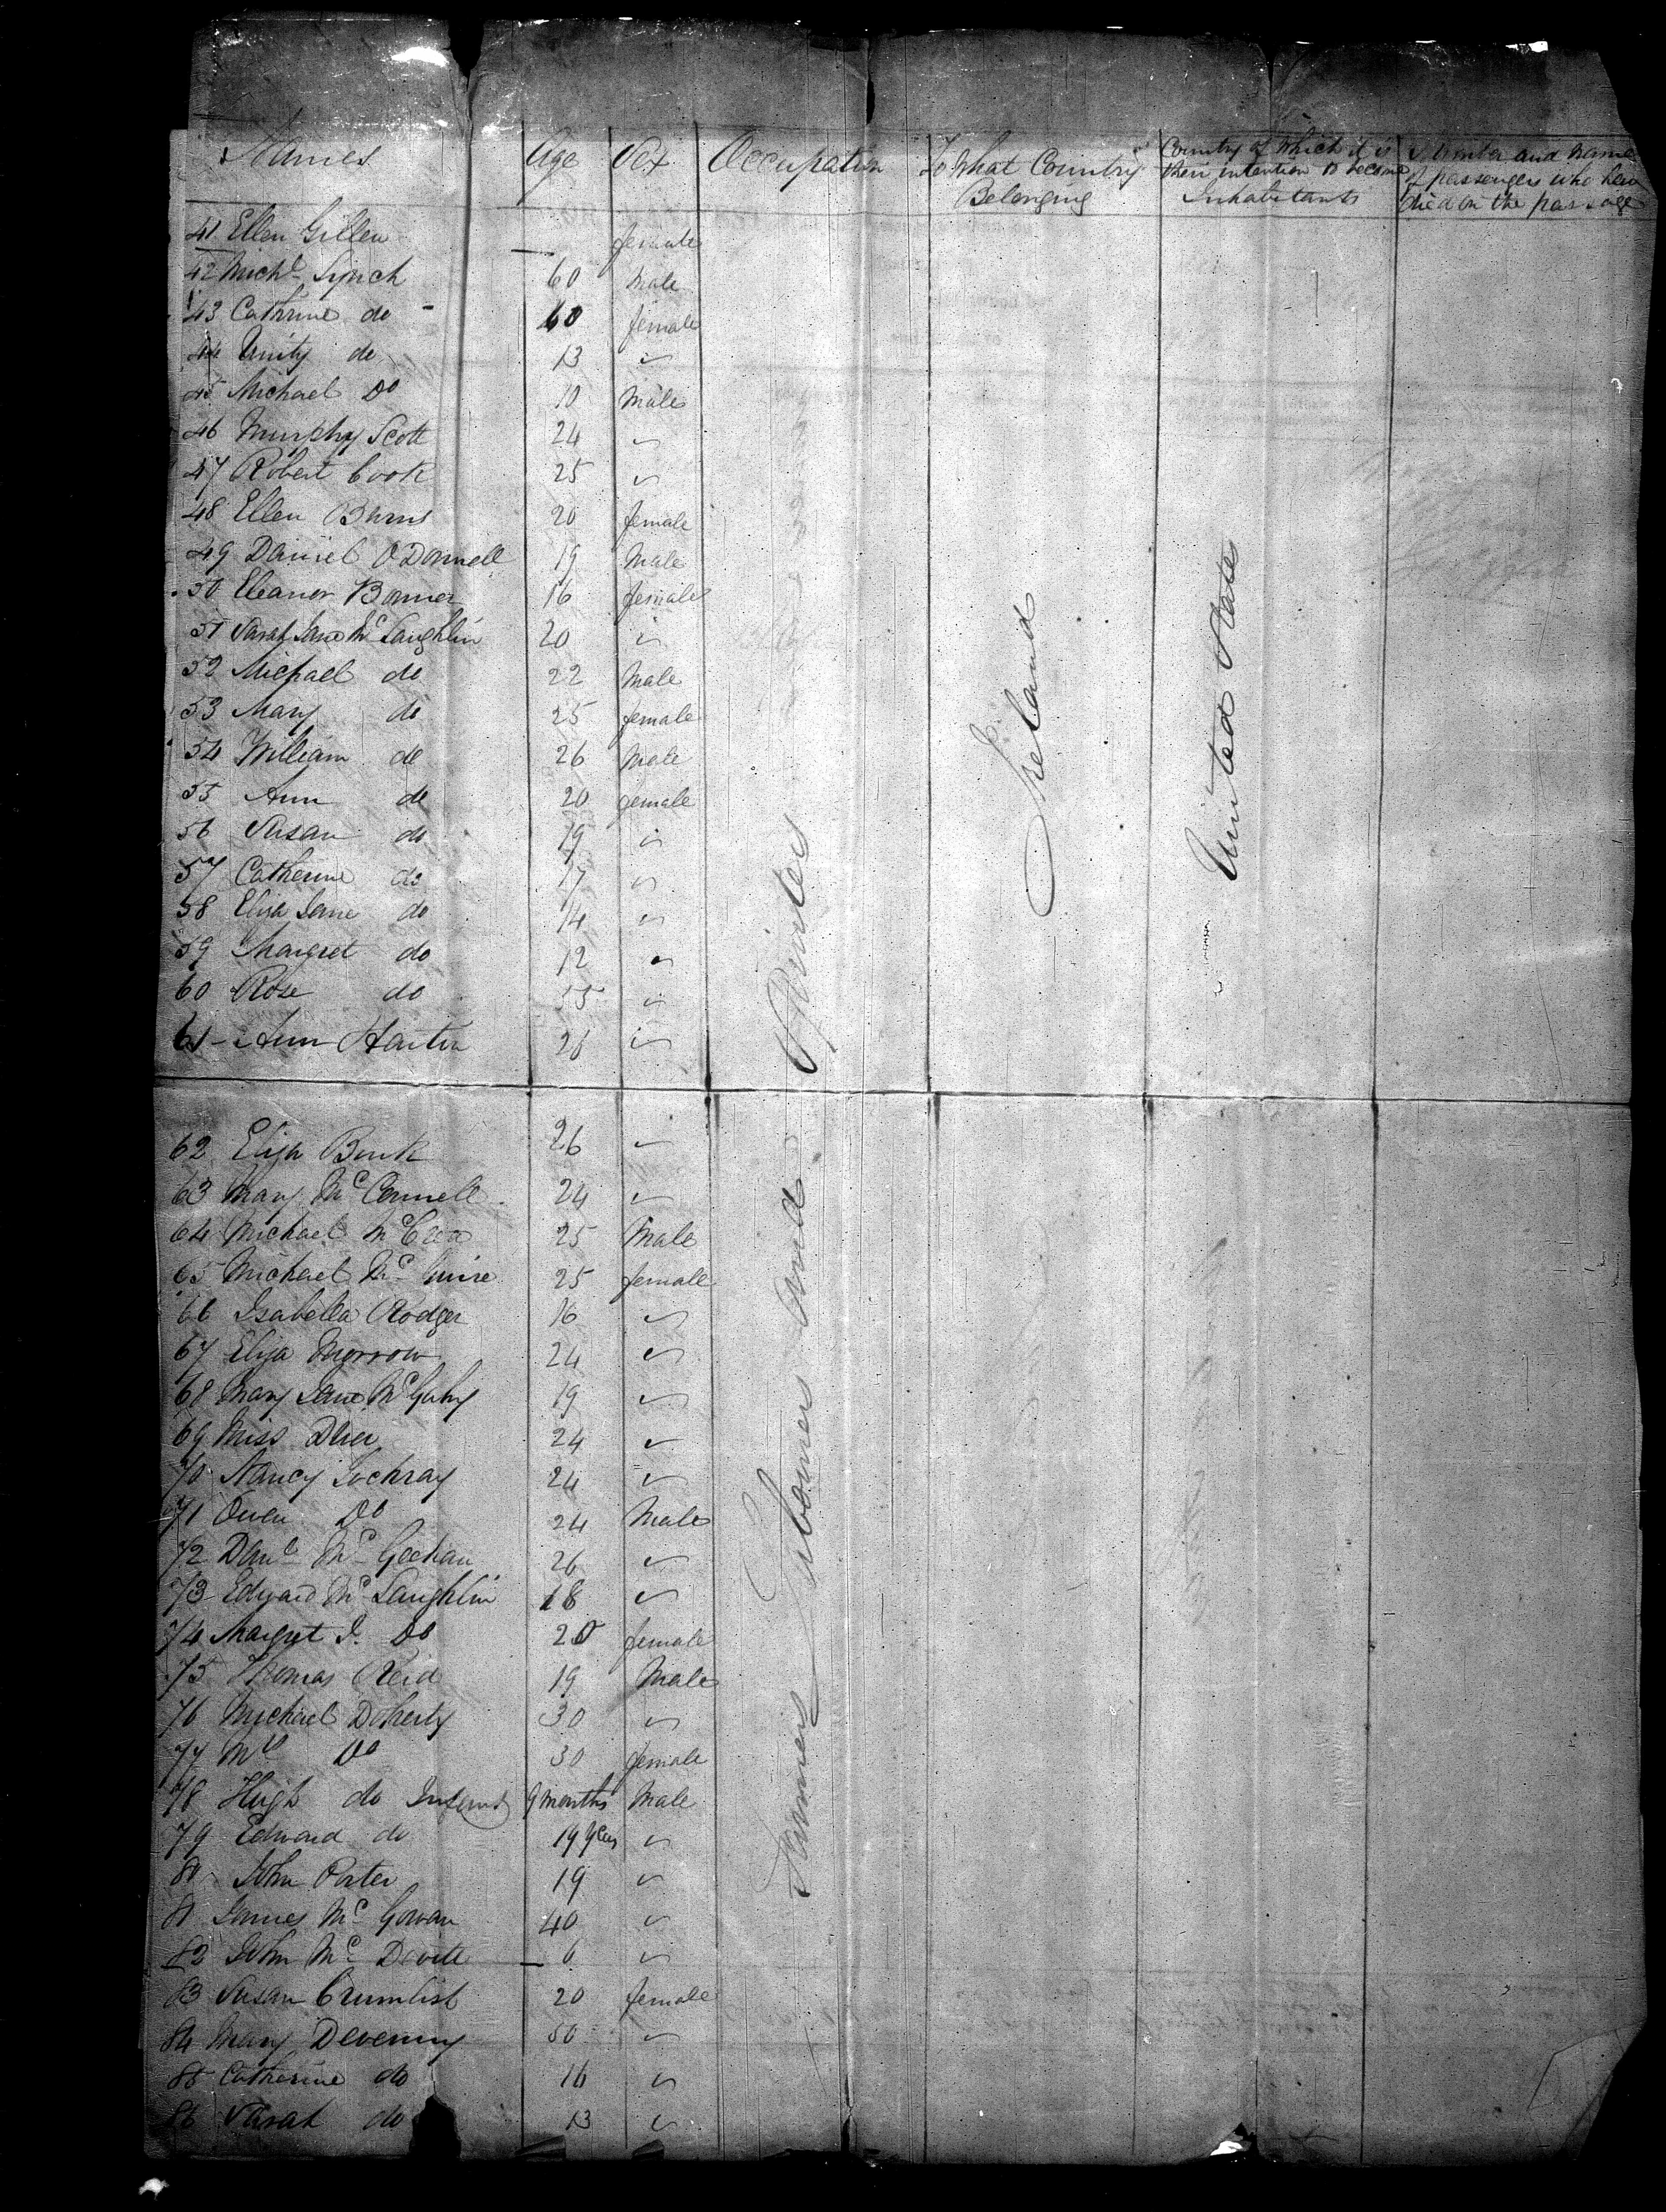 Names Age Sex Occupation To What Country Belonging Country of Which it is their intention to become Inhabitants Number and Name of passengers who have died on the passage
41 Ellen Gillen — female
42 Michl Lynch 60 Male
43 Cathrine do - 60 female
44 Unity do 13 "
45 Michael Do 10 Male
46 Murphy Scott 24 "
47 Robert Cook 25 "
48 Ellen Burns 20 female
49 Daniel O Donnell 19 Male
50 Eleanor Bonner 16 female
51 Sarah Jane Mc Laughlin 20 "
52 Michael do 22 Male
53 Mary do 25 female
54 William do 26 Male
55 Ann do 20 female
56 Susan do 19 "
57 Catherine do 17 "
58 Eliza Jane do 14 "
59 Margret do 12 "
60 Rose do 55 "
61 - Ann Hartin 26 "
62 Eliza 26 "
63 Mary Mc Connell 24 "
64 Michael 25 Male
65 Michael Mc Guire 25 female
66 Isabella Rodger 16 "
67 Eliza Morrow 24 "
68 Mary Jane 19 "
69 Miss 24 "
70 Nancy Lochray 24 "
71 Owen Do 24 Male
72 Danl Mc Geehan 26 "
73 Edward Mc Laughlin 18 "
74 Margret J. Do 20 female
75 Thomas Reid 19 Male
76 Michael Doherty 30 "
77 Mrs Do 30 female
78 Hugh do Infant 9 months Male
79 Edward do 19 years "
80 John Porter 19 "
81 James Mc Gowan 40 "
82 John Mc Devitt — 6 "
83 Susan Crumlish 20 female
84 Mary Devenny 50 "
85 Catherine do 16 "
86 Sarah do 13 "
Farmers Labourers and Spinsters
Ireland
United States